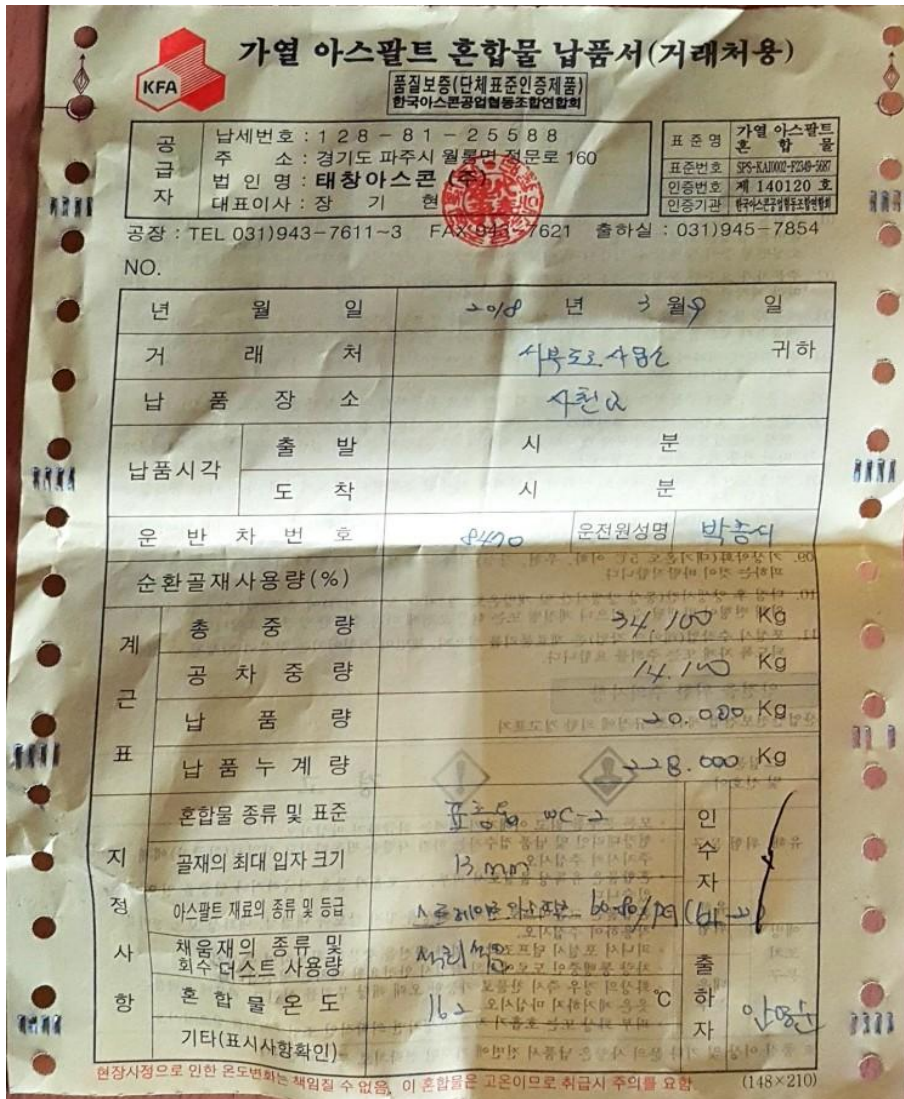 KFA
가열 아스팔트 혼합물 납품서(거래처용)
품질보증(단체표준인증제품)
한국아스콘공업협동조합연합회
공급자
납세번호 : 128-81-25588
주 소 : 경기도 파주시 월롱면 정문로 160
법 인 명 : 태창아스콘 (주)
대표이사 : 장 기 현
표 준 명 가열 아스팔트 혼 합 물
표준번호 SPS-KAI0002-F2349-5687
인증번호 제 140120 호
인증기관 한국아스콘공업협동조합연합회
공장 : TEL 031)943-7611~3 FAX 943-7621 출하실 : 031)945-7854
NO.
년 월 일 2018 년 3 월 9 일
거 래 처 서부도로사업소 귀하
납 품 장 소
납품시각 출 발 시 분
도 착 시 분
운 반 차 번 호 8470 운전원성명
순환골재사용량(%)
계근표
총 중 량 34.100 Kg
공 차 중 량 14.100 Kg
납 품 량 20.000 Kg
납 품 누 계 량 228.000 Kg
지정사항
혼합물 종류 및 표준 표층용 WC-2
골재의 최대 입자 크기 13mm
아스팔트 재료의 종류 및 등급
채움재의 종류 및 회수 더스트 사용량
혼 합 물 온 도 162 ℃
기타(표시사항확인)
인수자
출하자
현장사정으로 인한 온도변화는 책임질 수 없음, 이 혼합물은 고온이므로 취급시 주의를 요함 (148×210)